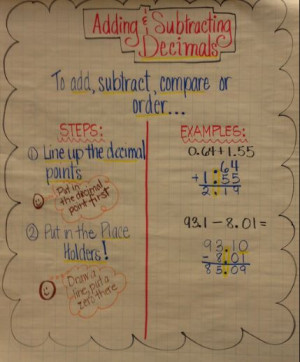 Adding & Subtracting
Decimals
To add, subtract, compare or
order...
STEPS:
① Line up the decimal
points
Put in
the decimal
point first
② Put in the Place
Holders!
Draw a
line, put a
zero there
EXAMPLES:
0.64 + 1.55
.64
+ 1.55
2.19
93.1 - 8.01 =
93.10
- 8.01
85.09